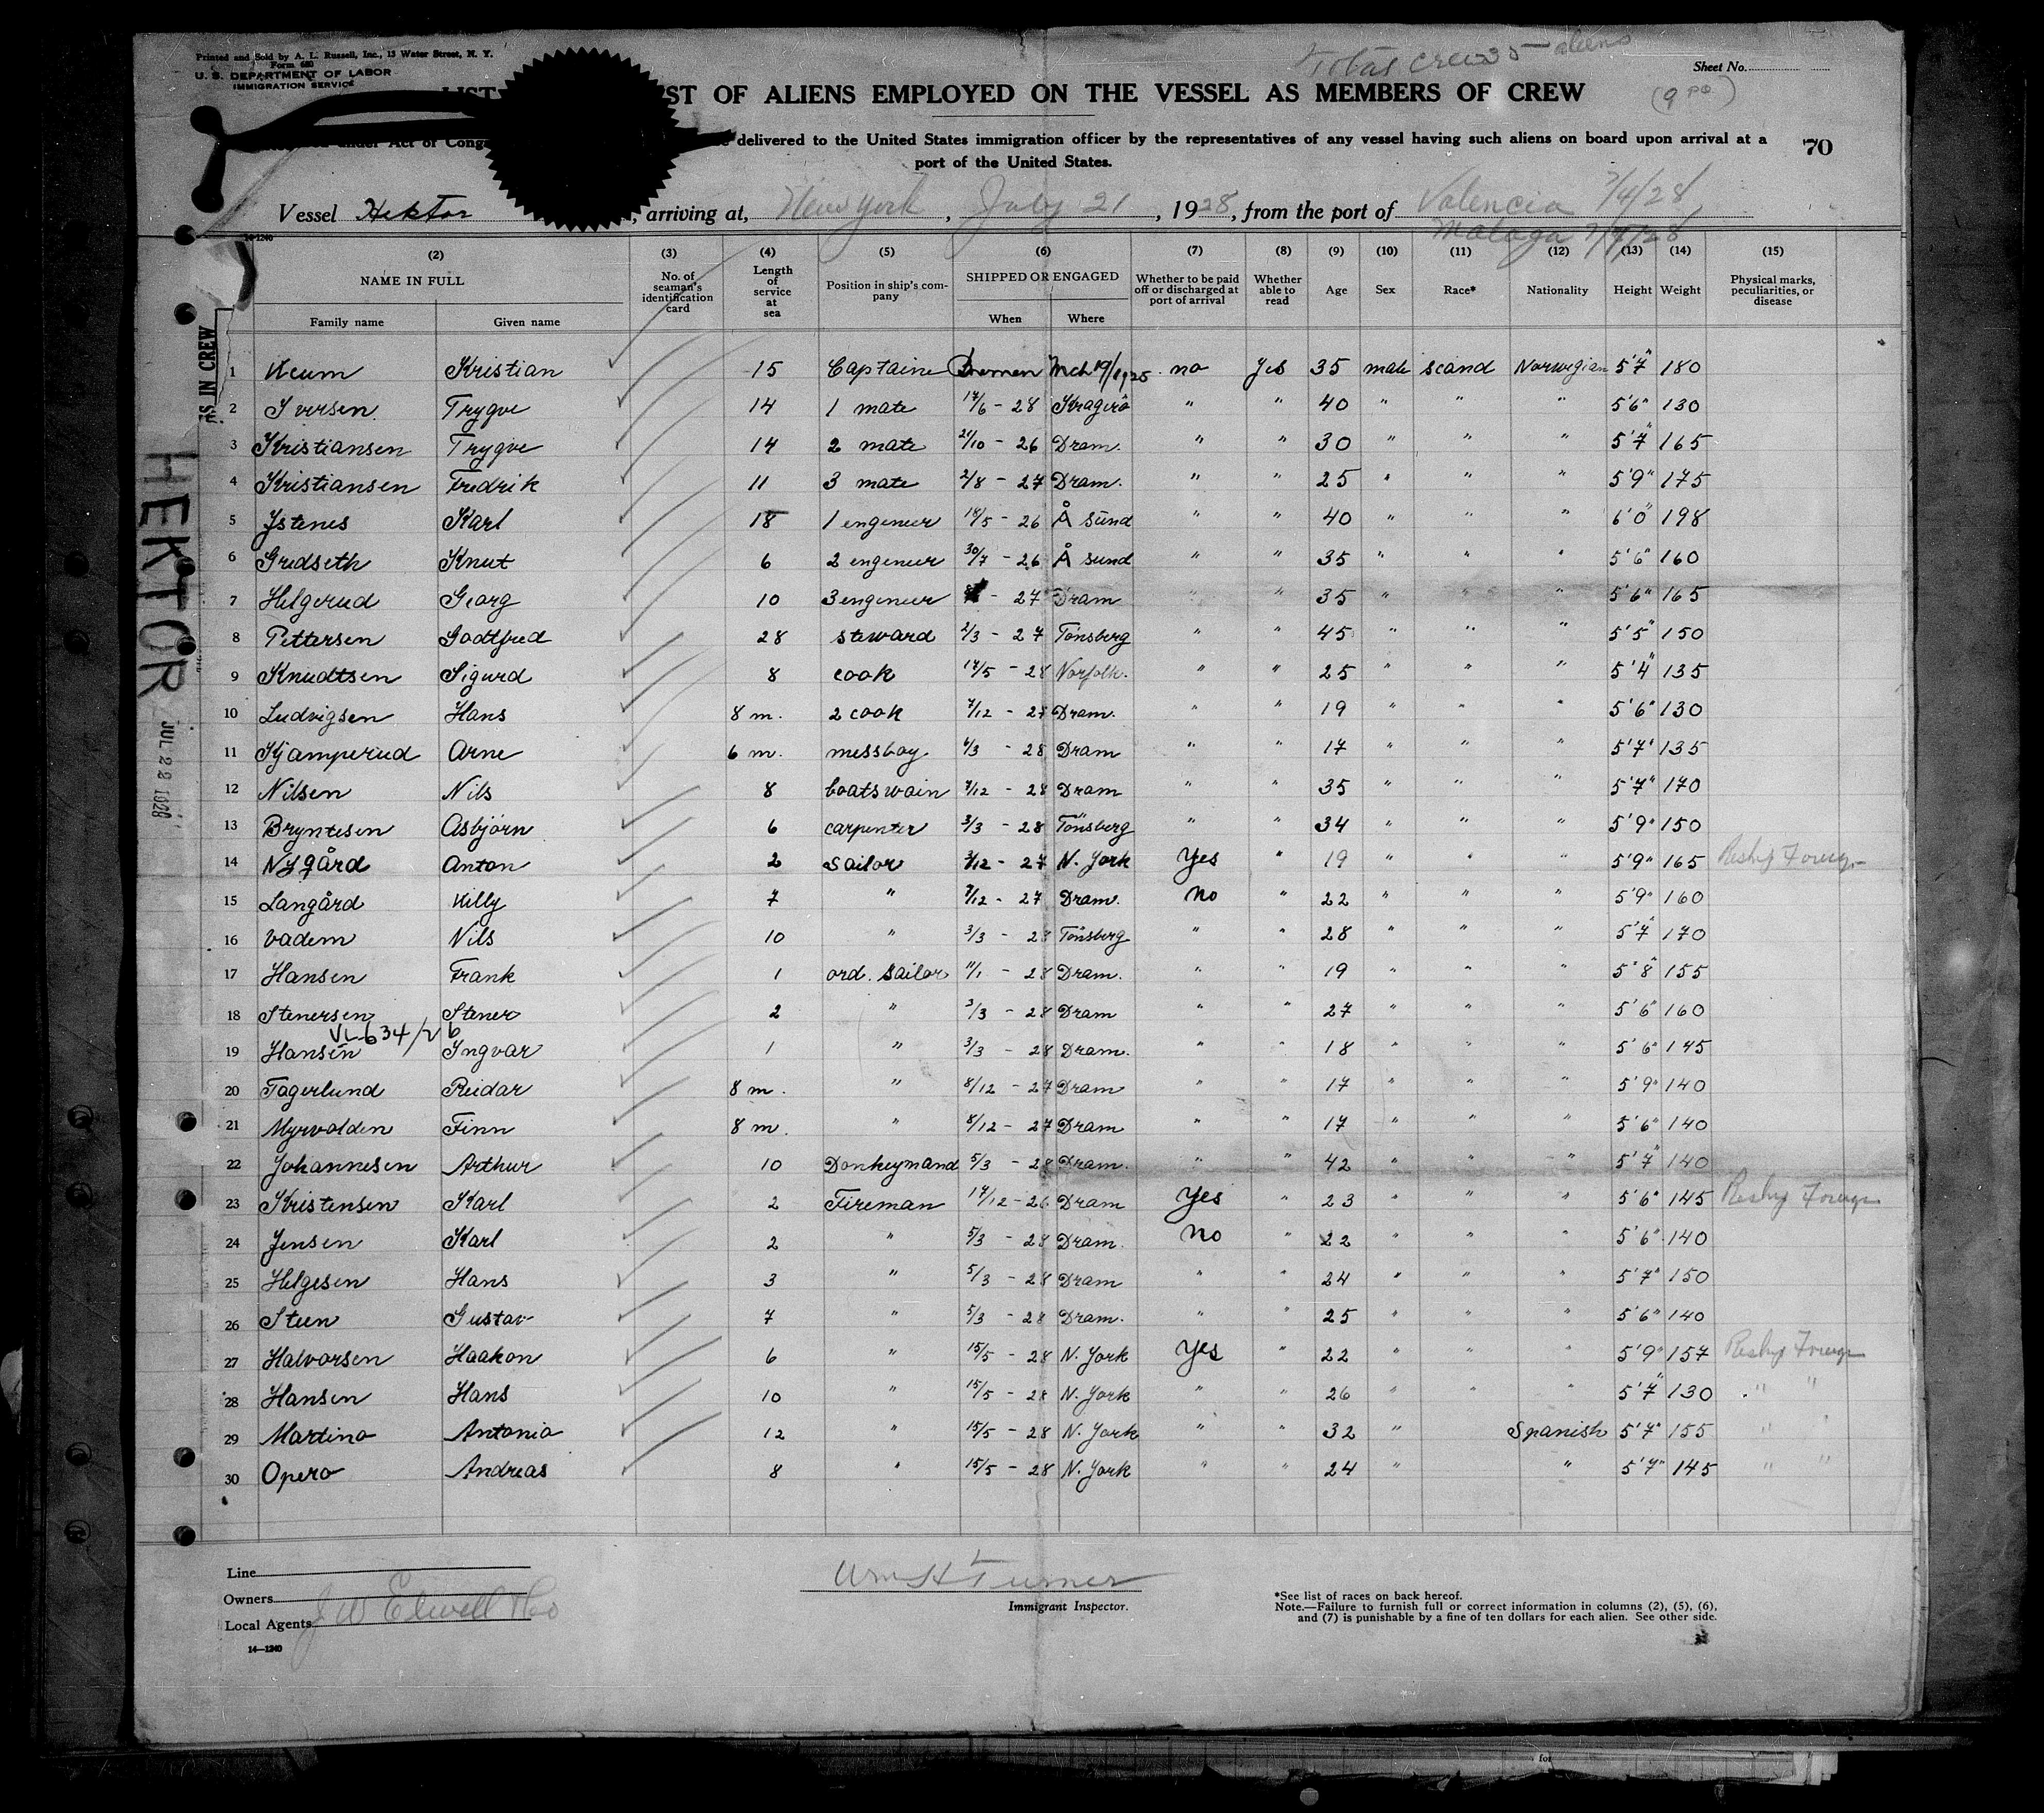 Printed and Sold by A. L. Russell, Inc., 13 Water Street, N. Y.
Form 680
U. S. DEPARTMENT OF LABOR
IMMIGRATION SERVICE
Total crew 35 aliens
Sheet No.
(9 PO)
LIST OF ALIENS EMPLOYED ON THE VESSEL AS MEMBERS OF CREW
under Act of delivered to the United States immigration officer by the representatives of any vessel having such aliens on board upon arrival at a
port of the United States.
70
Vessel Hektor, arriving at, New York, July 21, 1928, from the port of Valencia 7/4/28
Malaga 7/7/28
14-1240
(2) (3) (4) (5) (6) (7) (8) (9) (10) (11) (12) (13) (14) (15)
NAME IN FULL Family name Given name No. of seaman's identification card Length of service at sea Position in ship's company SHIPPED OR ENGAGED When Where Whether to be paid off or discharged at port of arrival Whether able to read Age Sex Race* Nationality Height Weight Physical marks, peculiarities, or disease
1 Kristian 15 Captaine Bremen Mch 19/1925 no Yes 35 male scand Norwegian 5'7" 180
2 Iversen Trygve 14 1 mate 14/6 - 28 Kragerö " " 40 " " " 5'6" 130
3 Kristiansen Trygve 14 2 mate 21/10 - 26 Dram. " " 30 " " " 5'7" 165
4 Kristiansen Fredrik 11 3 mate 2/8 - 27 Dram. " " 25 " " " 5'9" 175
5 Ystenes Karl 18 1 engeneer 18/5 - 26 Å sund " " 40 " " " 6'0" 198
6 Gredseth Knut 6 2 engeneer 30/7 - 26 Å sund " " 35 " " " 5'6" 160
7 Helgerud Georg 10 3 engeneer - 27 Dram " " 35 " " " 5'6" 165
8 Pettersen Godtfred 28 steward 2/3 - 27 Tönsberg " " 45 " " " 5'5" 150
9 Knudtsen Sigurd 8 cook 14/5 - 28 Norfolk. " " 25 " " " 5'4" 135
10 Ludvigsen Hans 8 m. 2 cook 7/12 - 27 Dram. " " 19 " " " 5'6" 130
11 Kjamperud Arne 6 m. messboy 6/3 - 28 Dram " " 17 " " " 5'7" 135
12 Nilsen Nils 8 boatswain 7/12 - 28 Dram " " 35 " " " 5'7" 170
13 Bryntesen Asbjörn 6 carpenter 3/3 - 28 Tönsberg " " 34 " " " 5'9" 150
14 Nygård Anton 2 Sailor 3/12 - 27 N. York Yes " 19 " " " 5'9" 165 Reship Foreign
15 Langård Villy 7 " 7/12 - 27 Dram. no " 22 " " " 5'9" 160
16 Vadem Nils 10 " 3/3 - 28 Tönsberg " " 28 " " " 5'7" 170
17 Hansen Frank 1 ord. Sailor 11/1 - 28 Dram. " " 19 " " " 5'8" 155
18 Stenersen Stener 2 " 3/3 - 28 Dram " " 27 " " " 5'6" 160
19 Hansen Ingvar 1 " 3/3 - 28 Dram. " " 18 " " " 5'6" 145
20 Fagerlund Reidar 8 m. " 8/12 - 27 Dram " " 17 " " " 5'9" 140
21 Myrvolden Finn 8 m. " 8/12 - 27 Dram " " 17 " " " 5'6" 140
22 Johannesen Arthur 10 Donkeymand 5/3 - 28 Dram. " " 42 " " " 5'7" 140
23 Kristensen Karl 2 Fireman 14/12 - 26 Dram Yes " 23 " " " 5'6" 145 Reship Foreign
24 Jensen Karl 2 " 5/3 - 28 Dram. no " 22 " " " 5'6" 140
25 Helgesen Hans 3 " 5/3 - 28 Dram " " 24 " " " 5'7" 150
26 Steen Gustav 7 " 5/3 - 28 Dram. " " 25 " " " 5'6" 140
27 Halvorsen Haakon 6 " 15/5 - 28 N. York Yes " 22 " " " 5'9" 157 Reship Foreign
28 Hansen Hans 10 " 15/5 - 28 N. York " " 26 " " " 5'7" 130 " "
29 Martino Antonio 12 " 15/5 - 28 N. York " " 32 " Spanish 5'7" 155 " "
30 Opero Andreas 8 " 15/5 - 28 N. York " " 24 " " 5'7" 145 " "
IN CREW
HEKTOR
JUL 22 1928
Line
Owners
Local Agents J W Elwell & Co
14—1240
Wm H Turner
Immigrant Inspector.
*See list of races on back hereof.
Note.—Failure to furnish full or correct information in columns (2), (5), (6),
and (7) is punishable by a fine of ten dollars for each alien. See other side.
for